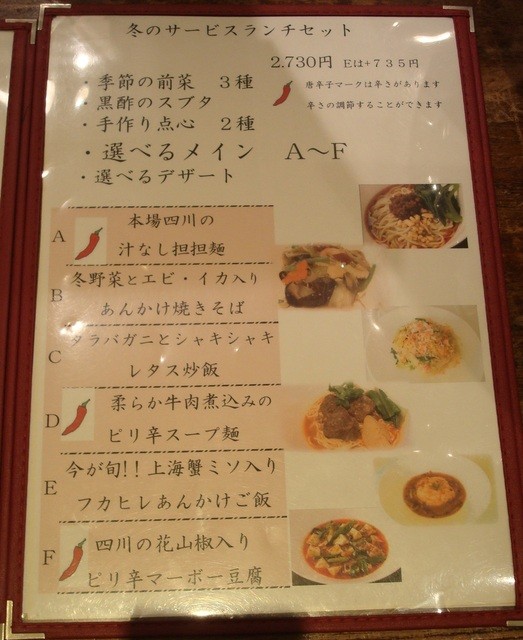 冬のサービスランチセット
2.730円 Eは+735円
・季節の前菜 3種
唐辛子マークは辛さがあります
・黒酢のスブタ
辛さの調節することができます
・手作り点心 2種
・選べるメイン A~F
・選べるデザート
A 本場四川の
汁なし担担麺
B 冬野菜とエビ・イカ入り
あんかけ焼きそば
C タラバガニとシャキシャキ
レタス炒飯
D 柔らか牛肉煮込みの
ピリ辛スープ麺
E 今が旬!!上海蟹ミソ入り
フカヒレあんかけご飯
F 四川の花山椒入り
ピリ辛マーボー豆腐